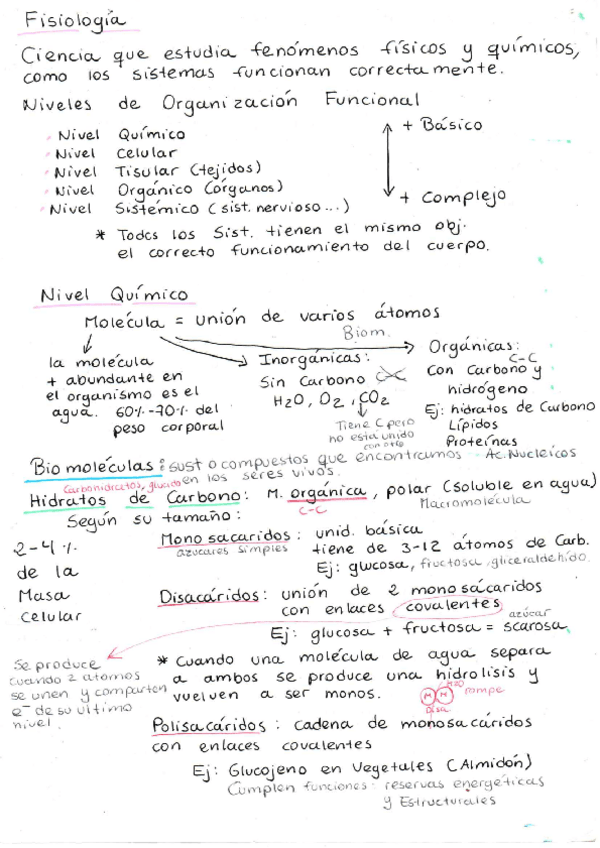 Fisiología
Ciencia que estudia fenómenos físicos y químicos,
como los sistemas funcionan correctamente.
Niveles de Organización Funcional
Nivel Químico
Nivel Celular
Nivel Tisular (tejidos)
Nivel Orgánico (órganos)
Nivel Sistémico (sist. nervioso...)
+ Básico
+ Complejo
* Todos los Sist. tienen el mismo obj.
el correcto funcionamiento del cuerpo.
Nivel Químico
Molécula = unión de varios átomos
Biom.
la molécula
+ abundante en
el organismo es el
agua. 60%-70% del
peso corporal
Inorgánicas:
Sin Carbono
H2O, O2, CO2
Tiene C pero
no esta unido
con otro
Orgánicas:
C-C
Con Carbono y
hidrógeno
Ej: hidratos de Carbono
Lípidos
Proteínas
Ac. Nucleicos
Biomoléculas: sust o compuestos que encontramos
en los seres vivos.
Carbohidratos, glucido
Hidratos de Carbono: M. orgánica, polar (soluble en agua)
C-C
Macromolécula
Según su tamaño:
2-4%
de la
Masa
Celular
Monosacaridos: unid. básica
azucares simples
tiene de 3-12 átomos de Carb.
Ej: glucosa, fructosa, gliceraldehído.
Disacáridos: unión de 2 monosacáridos
con enlaces covalentes
azúcar
Ej: glucosa + fructosa = scarosa
Se produce
cuando 2 atomos
se unen y comparten
e- de su ultimo
nivel.
* Cuando una molécula de agua separa
a ambos se produce una hidrolisis y
vuelven a ser monos.
H2O
rompe
M M
Disa
Polisacáridos: cadena de monosacáridos
con enlaces covalentes
Ej: Glucojeno en Vegetales (Almidón)
Cumplen funciones: reservas energéticas
y Estructurales